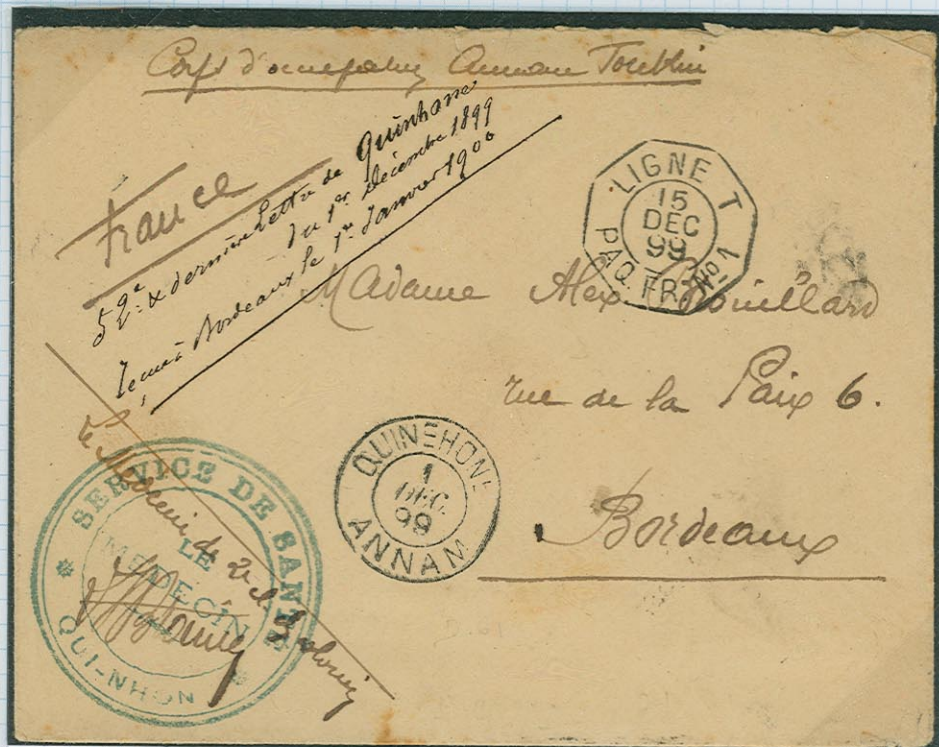 Corps d'occupation Annam Tonkin
France
52e & dernière Lettre de Quinhone
du 1er décembre 1899
Reçue à Bordeaux le 1er Janvier 1900
LIGNE T
15
DEC
99
PAQ. FR. No 1
Madame Alex
rue de la Paix 6.
Bordeaux
QUINEHONE
1
DEC
99
ANNAM
Le Médecin de 2e cl. Colonies
SERVICE DE SANTÉ
LE
MEDECIN
QUI-NHON